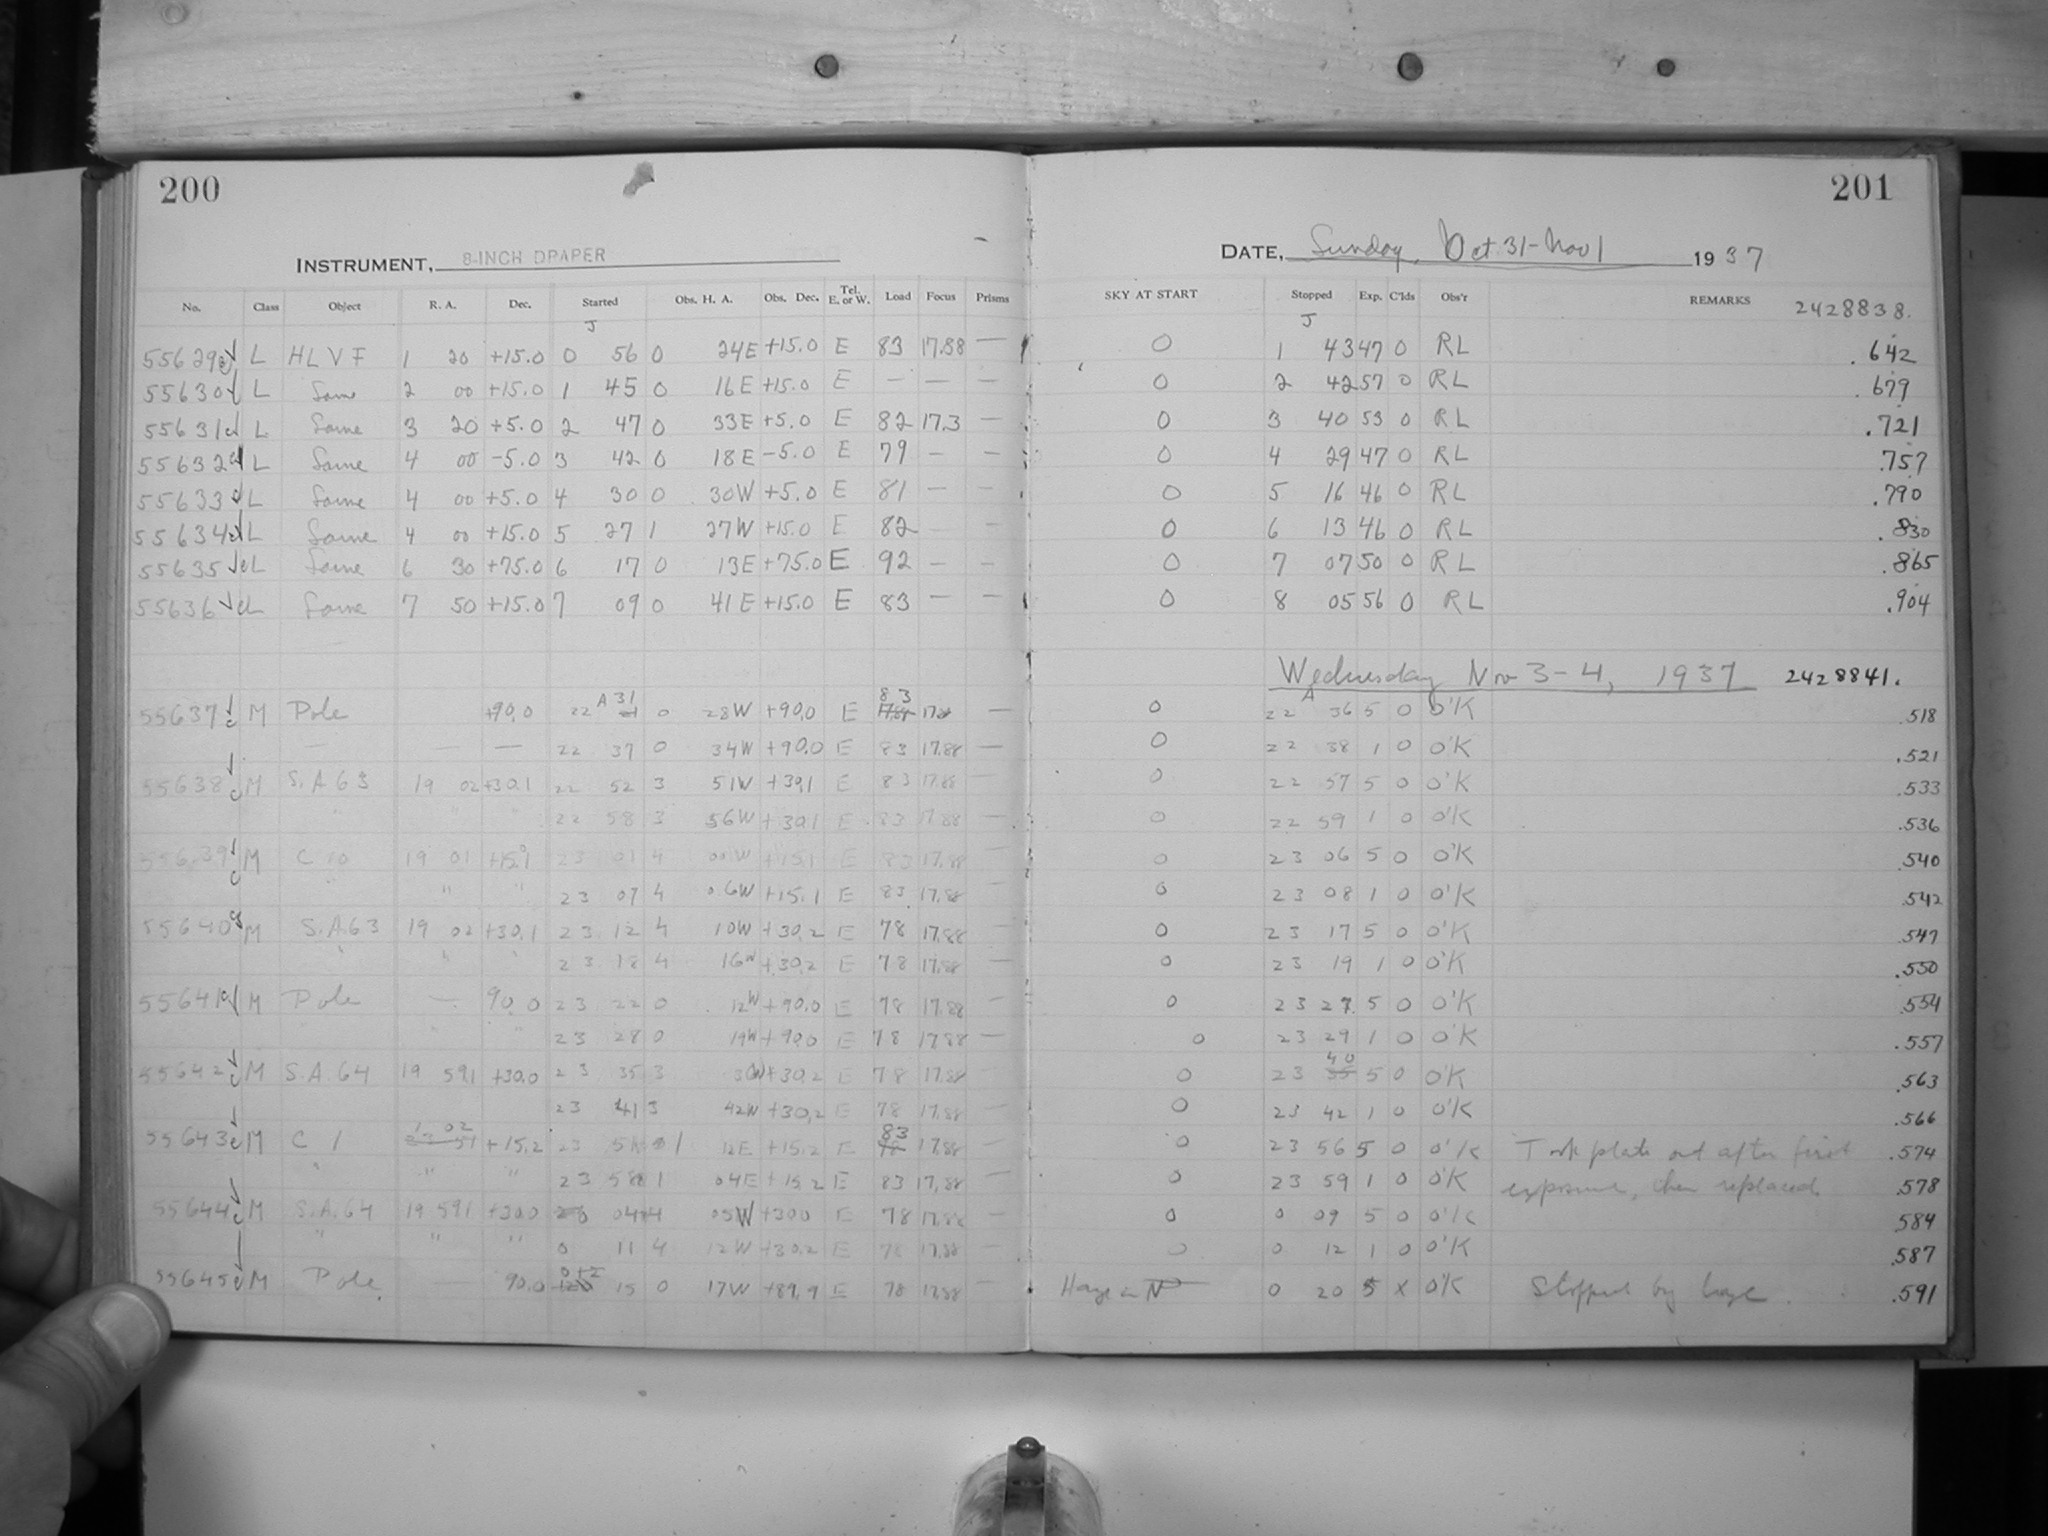 200
201
INSTRUMENT, 8-INCH DPAPER
DATE, Sunday, Oct. 31-Nov 1 1937
No. Class Object R. A. Dec. Started Obs. H. A. Obs. Dec. Tel. E. or W. Load Focus Prisms SKY AT START Stopped Exp. C'lds Obs'r REMARKS 2428838.
J J
55629 L HLVF 1 20 +15.0 0 56 0 24E +15.0 E 83 17.88 — 0 1 43 47 0 RL .642
55630 L Same 2 00 +15.0 1 45 0 16E +15.0 E — — — 0 2 42 57 0 RL .679
55631 L Same 3 20 +5.0 2 47 0 33E +5.0 E 82 17.3 — 0 3 40 53 0 RL .721
55632 L Same 4 00 -5.0 3 42 0 18E -5.0 E 79 — — 0 4 29 47 0 RL .757
55633 L Same 4 00 +5.0 4 30 0 30W +5.0 E 81 — — 0 5 16 46 0 RL .790
55634 L Same 4 00 +15.0 5 27 1 27W +15.0 E 82 — — 0 6 13 46 0 RL .830
55635 L Same 6 30 +75.0 6 17 0 13E +75.0 E 92 — — 0 7 07 50 0 RL .865
55636 L Same 7 50 +15.0 7 09 0 41E +15.0 E 83 — — 0 8 05 56 0 RL .904
Wednesday Nov 3-4, 1937 2428841.
55637 M Pole +90.0 22 A 31 0 28W +90.0 E 83 — 0 22 A 36 5 0 O'K .518
— — — 22 37 0 34W +90.0 E 83 17.88 — 0 22 38 1 0 O'K .521
55638 M S.A 63 19 02 +30.1 22 52 3 51W +30.1 E 83 17.88 — 0 22 57 5 0 O'K .533
" 22 58 3 56W +30.1 E 83 17.88 — 0 22 59 1 0 O'K .536
55639 M C 10 19 01 +15.1 23 01 4 00W +15.1 E 83 17.88 — 0 23 06 5 0 O'K .540
" " " 23 07 4 06W +15.1 E 83 17.88 — 0 23 08 1 0 O'K .542
55640 M S.A.63 19 02 +30.1 23 12 4 10W +30.2 E 78 17.88 — 0 23 17 5 0 O'K .547
" " " 23 18 4 16W +30.2 E 78 17.88 — 0 23 19 1 0 O'K .550
55641 M Pole — 90.0 23 22 0 12W +90.0 E 78 17.88 — 0 23 27 5 0 O'K .554
" " 23 28 0 19W +90.0 E 78 17.88 — 0 23 29 1 0 O'K .557
55642 M S.A.64 19 59.1 +30.0 23 35 3 36W +30.2 E 78 17.88 — 0 23 40 5 0 O'K .563
23 41 3 42W +30.2 E 78 17.88 — 0 23 42 1 0 O'K .566
55643 M C 1 1 02 +15.2 23 51 1 12E +15.2 E 83 17.88 — 0 23 56 5 0 O'K Took plate out after first .574
" " " 23 58 1 04E +15.2 E 83 17.88 — 0 23 59 1 0 O'K exposure, then replaced .578
55644 M S.A.64 19 59.1 +30.0 0 04 4 05W +30.0 E 78 17.88 — 0 0 09 5 0 O'K .584
" " " 0 11 4 12W +30.2 E 78 17.88 — 0 0 12 1 0 O'K .587
55645 M Pole — 90.0 0 15 0 17W +89.9 E 78 17.88 — Haze in N 0 20 5 X O'K Stopped by haze. .591